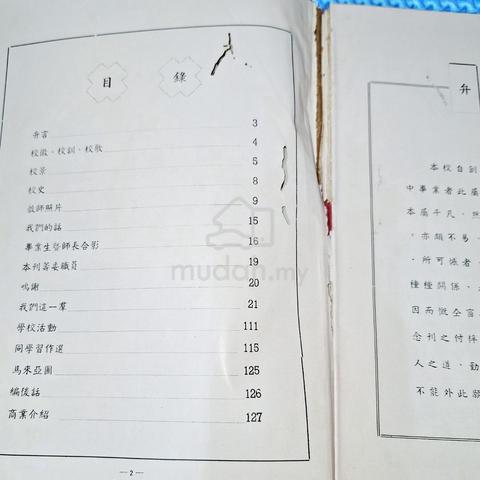 目 錄
弁言 3
校徽、校訓、校歌 4
校景 5
校史 8
敎師照片 9
我們的話 15
畢業生暨師長合影 16
本刋籌委職員 19
鳴謝 20
我們這一羣 21
學校活動 111
同學習作選 115
馬來亞團 125
編後話 126
商業介紹 127
— 2 —
mudah.my
弁
本校自創
中畢業者此屆
本屆千凡，然
，亦頗不易，
，所可派者，
種種關係，
因而微全豹
念刋之付梓
人之道，勤
不能外此願